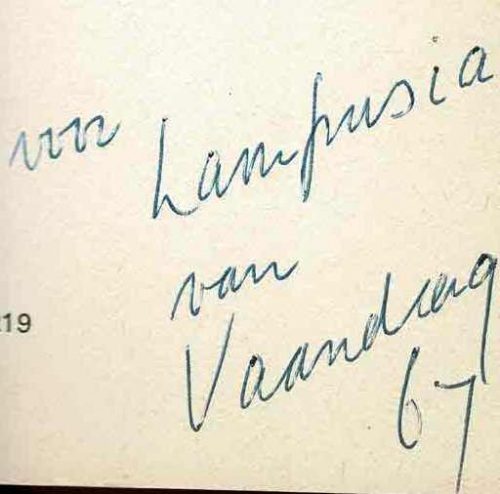 voor Lampusia
van
Vaandrag
67
219